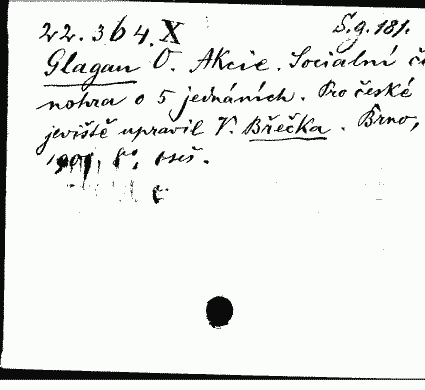 22.364.X S.g.181.
Glagan O. Akcie. Socialní či
nohra o 5 jednáních. Pro české
jeviště upravil V. Břečka. Brno,
1901. 8°. seš.